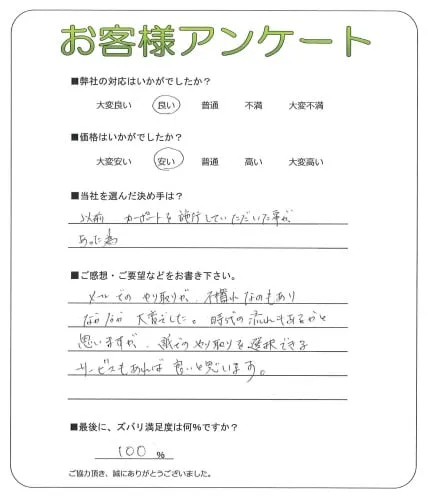 お客様アンケート
■弊社の対応はいかがでしたか？
大変良い 良い 普通 不満 大変不満
■価格はいかがでしたか？
大変安い 安い 普通 高い 大変高い
■当社を選んだ決め手は？
以前 カーポートを施行していただいた事が
あった為
■ご感想・ご要望などをお書き下さい。
メールでのやり取りが、不慣れなのもあり
なかなか大変でした。時代の流れもあるかと
思いますが、紙でのやり取りを選択できる
サービスもあれば良いと思います。
■最後に、ズバリ満足度は何%ですか？
100 %
ご協力頂き、誠にありがとうございました。